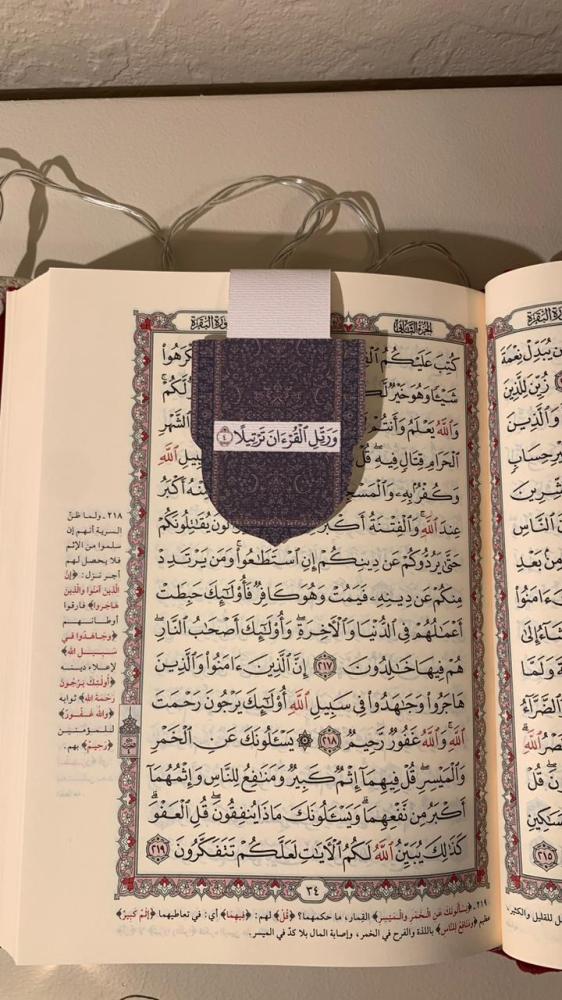 الجزء الثاني
كُتِبَ عَلَيْكُمُ
شَيْـًٔا وَهُوَ خَيْرٌ لَّكُمْ
وَٱللَّهُ يَعْلَمُ وَأَنتُمْ ٱلشَّهْرِ
ٱلْحَرَامِ قِتَالٍ فِيهِ ۖ قُلْ ٱللَّهِ
وَكُفْرٌۢ بِهِۦ أَكْبَرُ
عِندَ ٱللَّهِ ۚ وَٱلْفِتْنَةُ أَكْبَرُ يُقَٰتِلُونَكُمْ
حَتَّىٰ يَرُدُّوكُمْ عَن دِينِكُمْ إِنِ ٱسْتَطَٰعُوا۟ ۚ وَمَن يَرْتَدِدْ
مِنكُمْ عَن دِينِهِۦ فَيَمُتْ وَهُوَ كَافِرٌ فَأُو۟لَٰٓئِكَ حَبِطَتْ
أَعْمَٰلُهُمْ فِى ٱلدُّنْيَا وَٱلْـَٔاخِرَةِ ۖ وَأُو۟لَٰٓئِكَ أَصْحَٰبُ ٱلنَّارِ ۖ
هُمْ فِيهَا خَٰلِدُونَ ٢١٧ إِنَّ ٱلَّذِينَ ءَامَنُوا۟ وَٱلَّذِينَ
هَاجَرُوا۟ وَجَٰهَدُوا۟ فِى سَبِيلِ ٱللَّهِ أُو۟لَٰٓئِكَ يَرْجُونَ رَحْمَتَ
ٱللَّهِ ۚ وَٱللَّهُ غَفُورٌ رَّحِيمٌ ٢١٨ ۞ يَسْـَٔلُونَكَ عَنِ ٱلْخَمْرِ
وَٱلْمَيْسِرِ ۖ قُلْ فِيهِمَآ إِثْمٌ كَبِيرٌ وَمَنَٰفِعُ لِلنَّاسِ وَإِثْمُهُمَآ
أَكْبَرُ مِن نَّفْعِهِمَا ۗ وَيَسْـَٔلُونَكَ مَاذَا يُنفِقُونَ قُلِ ٱلْعَفْوَ ۗ
كَذَٰلِكَ يُبَيِّنُ ٱللَّهُ لَكُمُ ٱلْـَٔايَٰتِ لَعَلَّكُمْ تَتَفَكَّرُونَ ٢١٩
٣٤
وَرَتِّلِ ٱلْقُرْءَانَ تَرْتِيلًا ٤
٢١٨ ـ ولما ظنّ
السرية أنهم إن
سلموا من الإثم
فلا يحصل لهم
أجر نزل: ﴿إِنَّ
الَّذِينَ آمَنُوا وَالَّذِينَ
هَاجَرُوا﴾ فارقوا
أوطانهم
﴿وَجَاهَدُوا فِي
سَبِيلِ الله﴾
لإعلاء دينه
﴿أُولَئِكَ يَرْجُونَ
رَحْمَةَ الله﴾ ثوابه
﴿وَالله غَفُورٌ﴾
للمؤمنين
﴿رَحِيمٌ﴾ بهم.
٢١٩ ـ ﴿يَسْأَلُونَكَ عَنِ الْخَمْرِ وَالْمَيْسِرِ﴾ القِمار، ما حكمهما؟ ﴿قُلْ﴾ لهم: ﴿فِيهِمَا﴾ أي: في تعاطيهما ﴿إِثْمٌ كَبِيرٌ﴾
عظيم ﴿وَمَنَافِعُ لِلنَّاسِ﴾ باللذة والفرح في الخمر، وإصابة المال بلا كدّ في الميسر.
يُبَدِّلْ نِعْمَةَ
زُيِّنَ لِلَّذِينَ
وَٱلَّذِينَ
حِسَابٍ
ٱلنَّاسُ
مِنۢ بَعْدِ
ءَامَنُوا۟
إِلَىٰ
وَلَمَّا
وَٱلضَّرَّآءُ
ٱللَّهِ
قُلْ
٢١٥